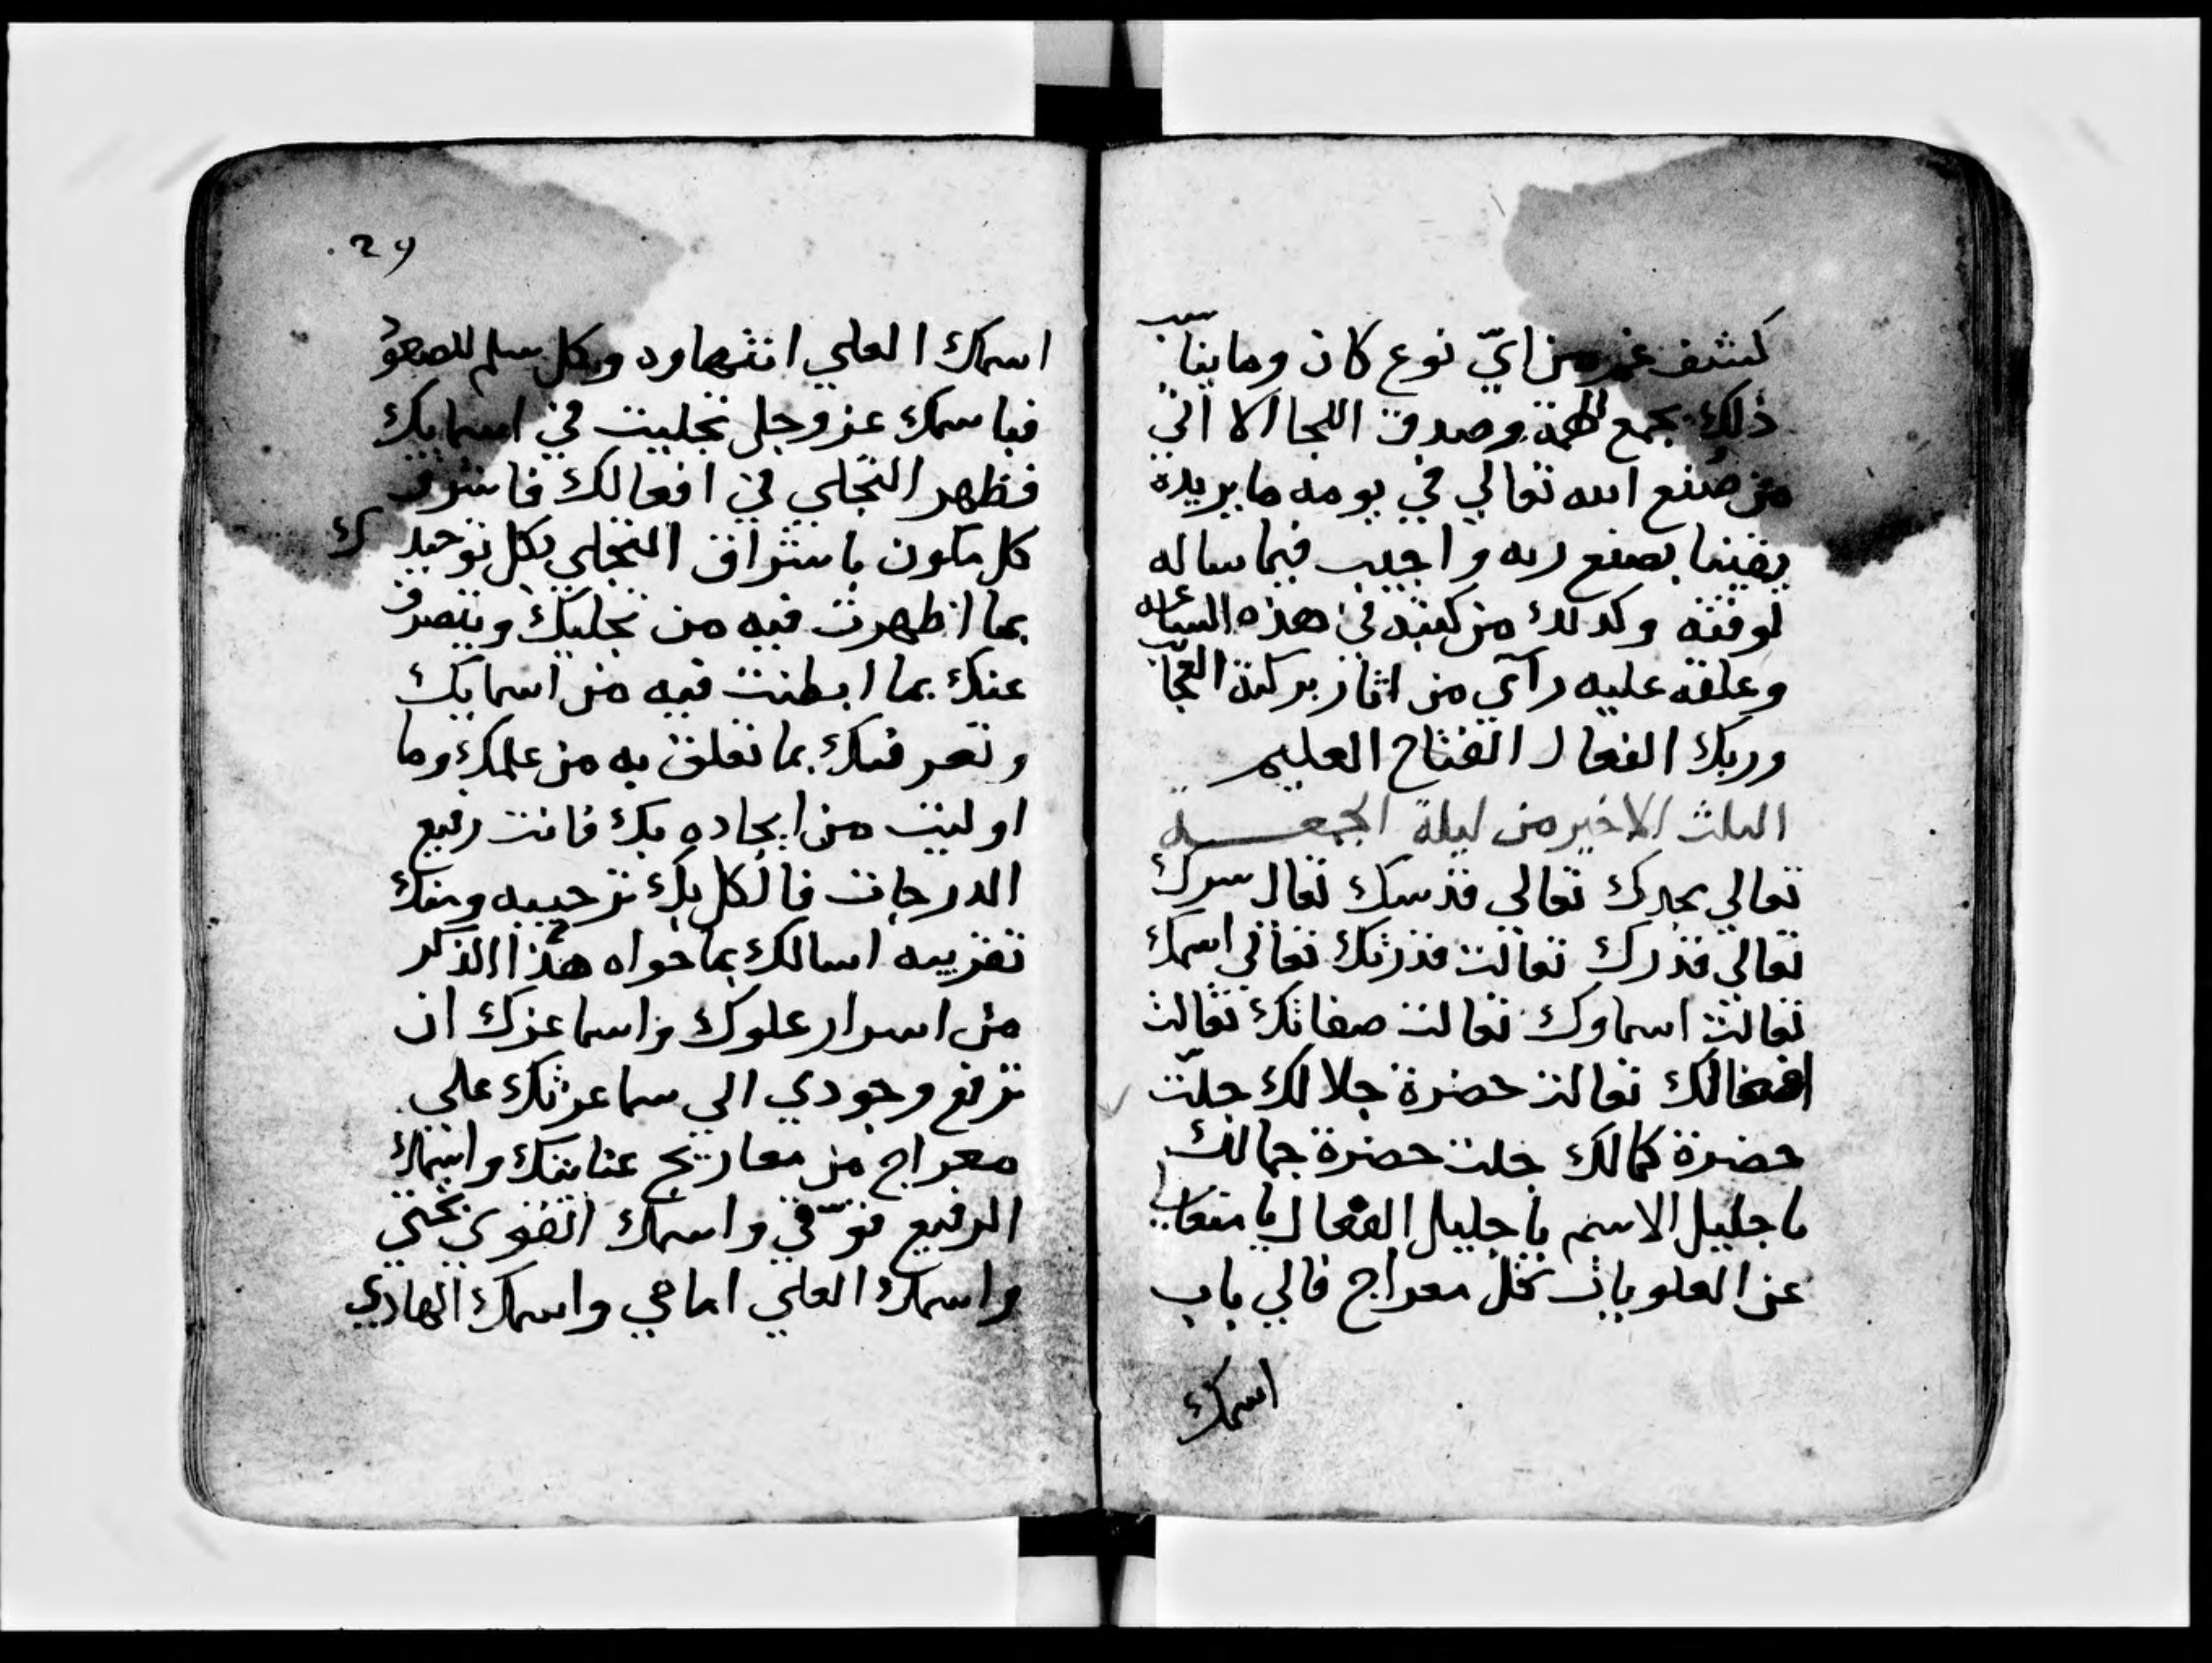 كشف غم من ايّ نوع كان وما يناسب
ذلك بجمع الهمة وصدق اللجا الا اتي
من صنع الله تعالي في يومه ما يريده
يقينا بصنع ربه واجيب فيما ساله
لوقته وكذلك من كتبه في هذه الساعه
وعلقه عليه رآي من اثار بركته العجا
وربك الفعال الفتاح العليم
الثلث الاخير من ليلة الجمعـــه
تعالي مجدك تعالي قدسك تعال سرك
تعالي قدرك تعالت قدرتك تعالي اسمك
تعالت اسماوك تعالت صفاتك تعالت
افعالك تعالت حضرة جلالك جلّت
حضرة كمالك جلت حضرة جمالك
يا جليل الاسم يا جليل الفعال يا متعالي
عن العلويات بكل معراج فالي باب
اسمك
29
اسمك العلي انتهاوه وبكل سلم للصعود
فباسمك عز وجل تجليت في اسمايك
فظهر التجلي في افعالك فاشرق
كل مكون باشراق التجلي بكل توحيدك
بما اظهرت فيه من تجليك ويتصرف
عنك بما ابطنت فيه من اسمايك
وتعرفك بما تعلق به من علمك وما
اوليت من ايجاده بك فانت رفيع
الدرجات فالكل بك ترحيبه ومنك
تقريبه اسالك بما حواه هذا الذكر
من اسرار علوك واسما عزك ان
ترفع وجودي الي سما عزتك علي
معراج من معاريج عنايتك واسمك
الرفيع فوقي واسمك القوي تحتي
واسمك العلي امامي واسمك الهادي